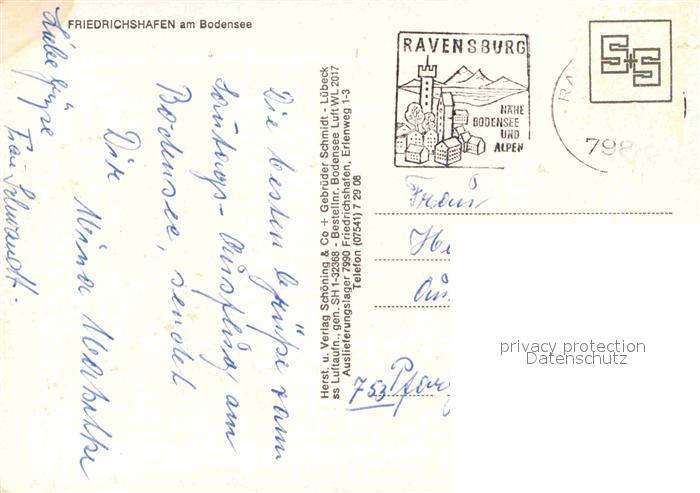 FRIEDRICHSHAFEN am Bodensee
Die besten Grüße vom
Sonntags-Ausflug am
Bodensee, sendet
Dir Mina
Liebe Grüße
Frau
Herst. u. Verlag Schöning & Co + Gebrüder Schmidt - Lübeck
ss Luftaufn., gen. SH 1-32368 - Bestellnr. Bodensee Luft WL 2017
Auslieferungslager 7990 Friedrichshafen, Erlenweg 1-3
Telefon (07541) 7 29 08
RAVENSBURG
NÄHE
BODENSEE
UND
ALPEN
S+S
798
Frau
He
753 Pforz
privacy protection
Datenschutz